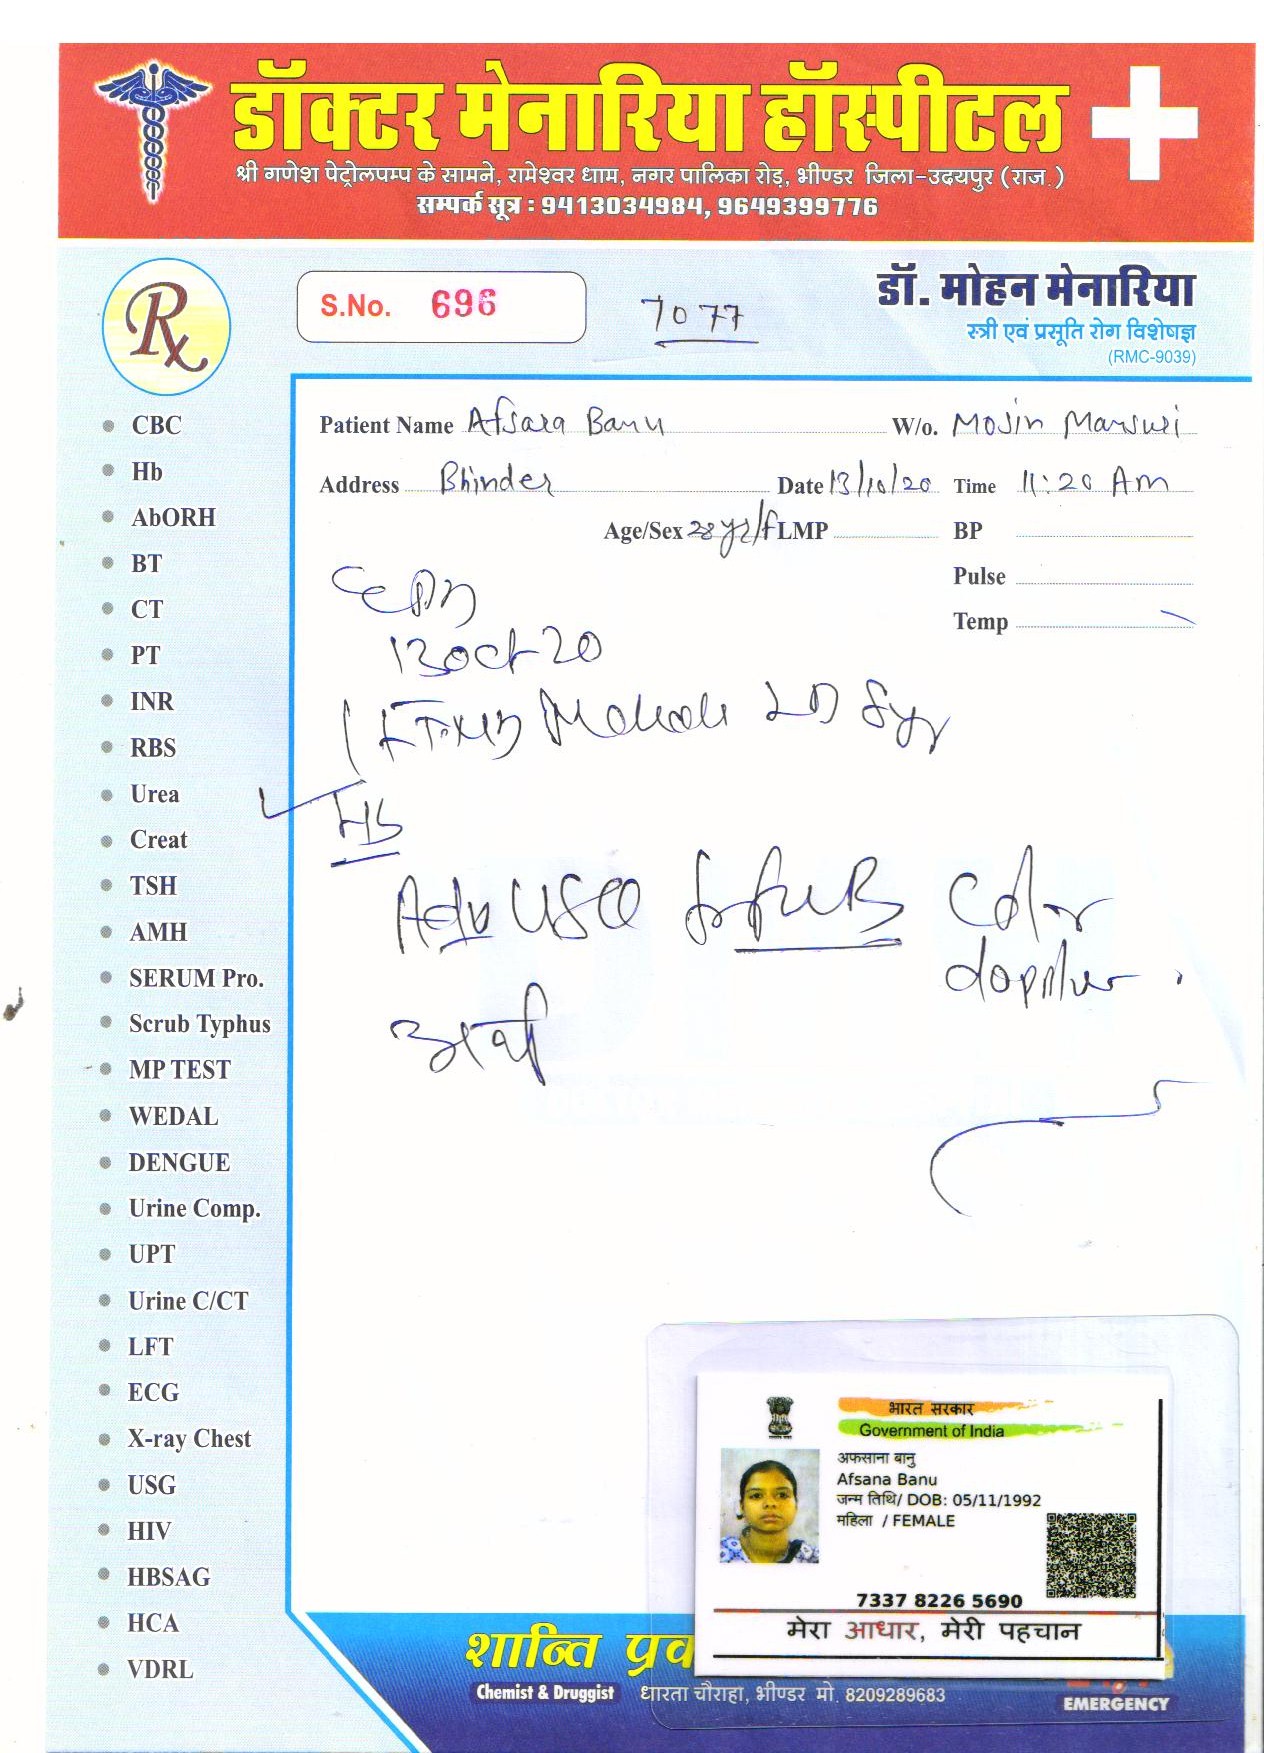 डॉक्टर मेनारिया हॉस्पीटल
श्री गणेश पेट्रोलपम्प के सामने, रामेश्वर धाम, नगर पालिका रोड़, भीण्डर जिला-उदयपुर (राज.)
सम्पर्क सूत्र : 9413034984, 9649399776
Rx
S.No. 696
7077
डॉ. मोहन मेनारिया
स्त्री एवं प्रसूति रोग विशेषज्ञ
(RMC-9039)
Patient Name Afsara Banu W/o. Mosin Mansuri
Address Bhinder Date 13/10/20 Time 11:20 Am
Age/Sex 28 yr/f LMP BP
Pulse
Temp
CBC
Hb
AbORH
BT
CT
PT
INR
RBS
Urea
Creat
TSH
AMH
SERUM Pro.
Scrub Typhus
MP TEST
WEDAL
DENGUE
Urine Comp.
UPT
Urine C/CT
LFT
ECG
X-ray Chest
USG
HIV
HBSAG
HCA
VDRL
13 Oct 20
Hb
Adv USG for FWB Color
doppler
भारत सरकार
Government of India
अफसाना बानु
Afsana Banu
जन्म तिथि/ DOB: 05/11/1992
महिला / FEMALE
7337 8226 5690
मेरा आधार, मेरी पहचान
शान्ति प्रव
Chemist & Druggist धारता चौराहा, भीण्डर मो. 8209289683
EMERGENCY